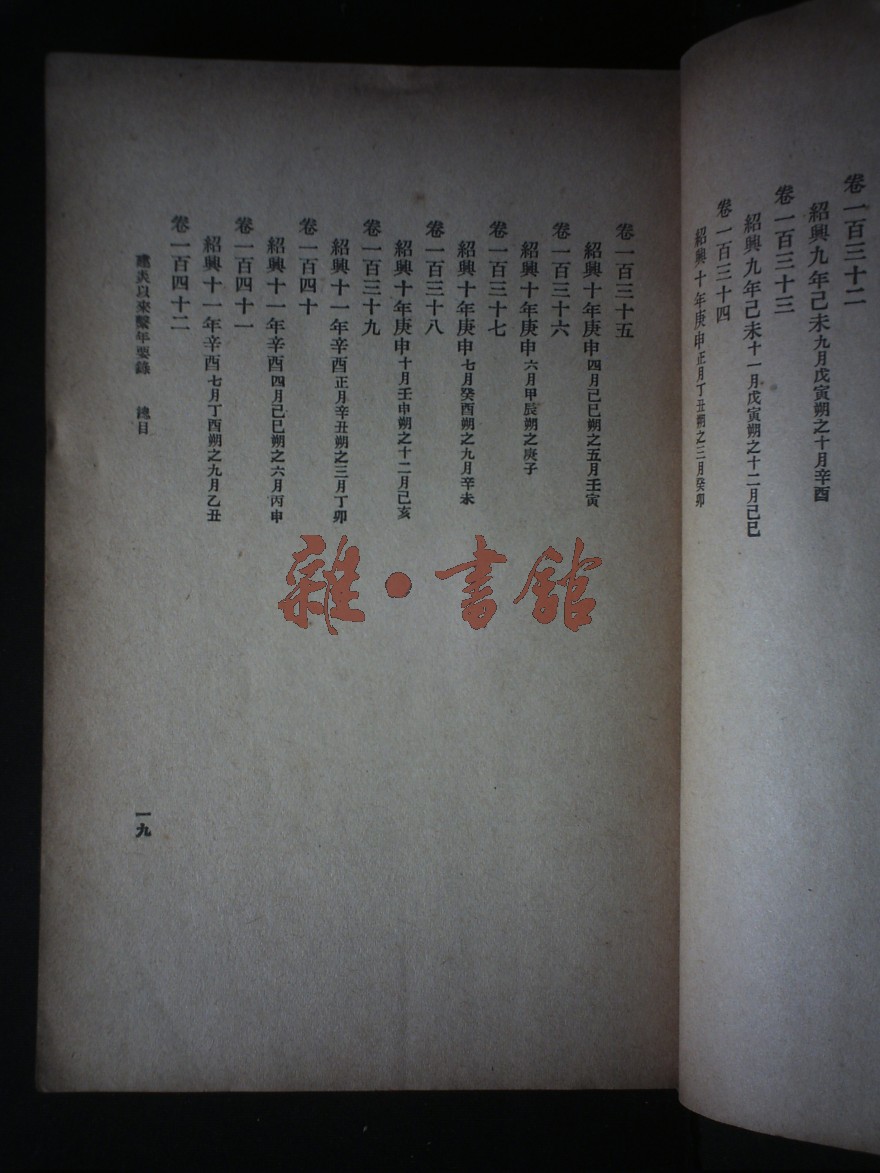 卷一百三十二
紹興九年己未九月戊寅朔之十月辛酉
卷一百三十三
紹興九年己未十一月戊寅朔之十二月己巳
卷一百三十四
紹興十年庚申正月丁丑朔之三月癸卯
卷一百三十五
紹興十年庚申四月己巳朔之五月壬寅
卷一百三十六
紹興十年庚申六月甲辰朔之庚子
卷一百三十七
紹興十年庚申七月癸酉朔之九月辛未
卷一百三十八
紹興十年庚申十月壬申朔之十二月己亥
卷一百三十九
紹興十一年辛酉正月辛丑朔之三月丁卯
卷一百四十
紹興十一年辛酉四月己巳朔之六月丙申
卷一百四十一
紹興十一年辛酉七月丁酉朔之九月乙丑
卷一百四十二
建炎以來繫年要錄 總目
一九
雜·書館